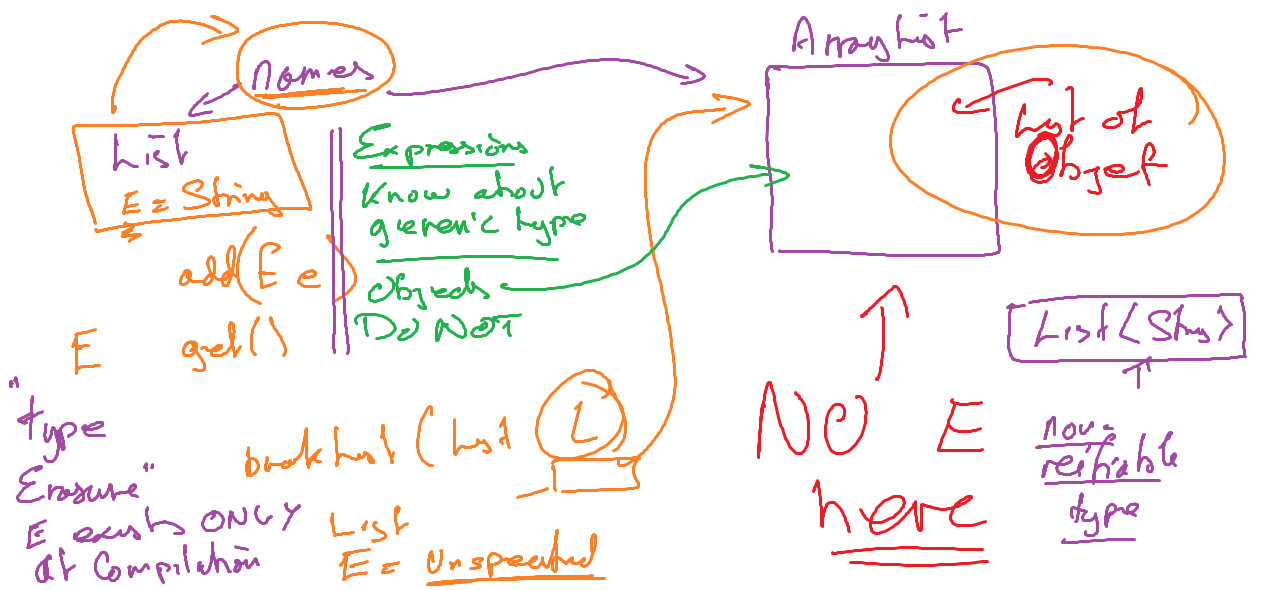 names
List
E = String
add(E e)
E get()
Expressions
Know about
generic type
Objects
Do NOT
ArrayList
List of
Object
NO E
here
List<String>
non-
reifiable
type
"type
Erasure"
E exists ONLY
at Compilation
(List L
List
E = Unspecified